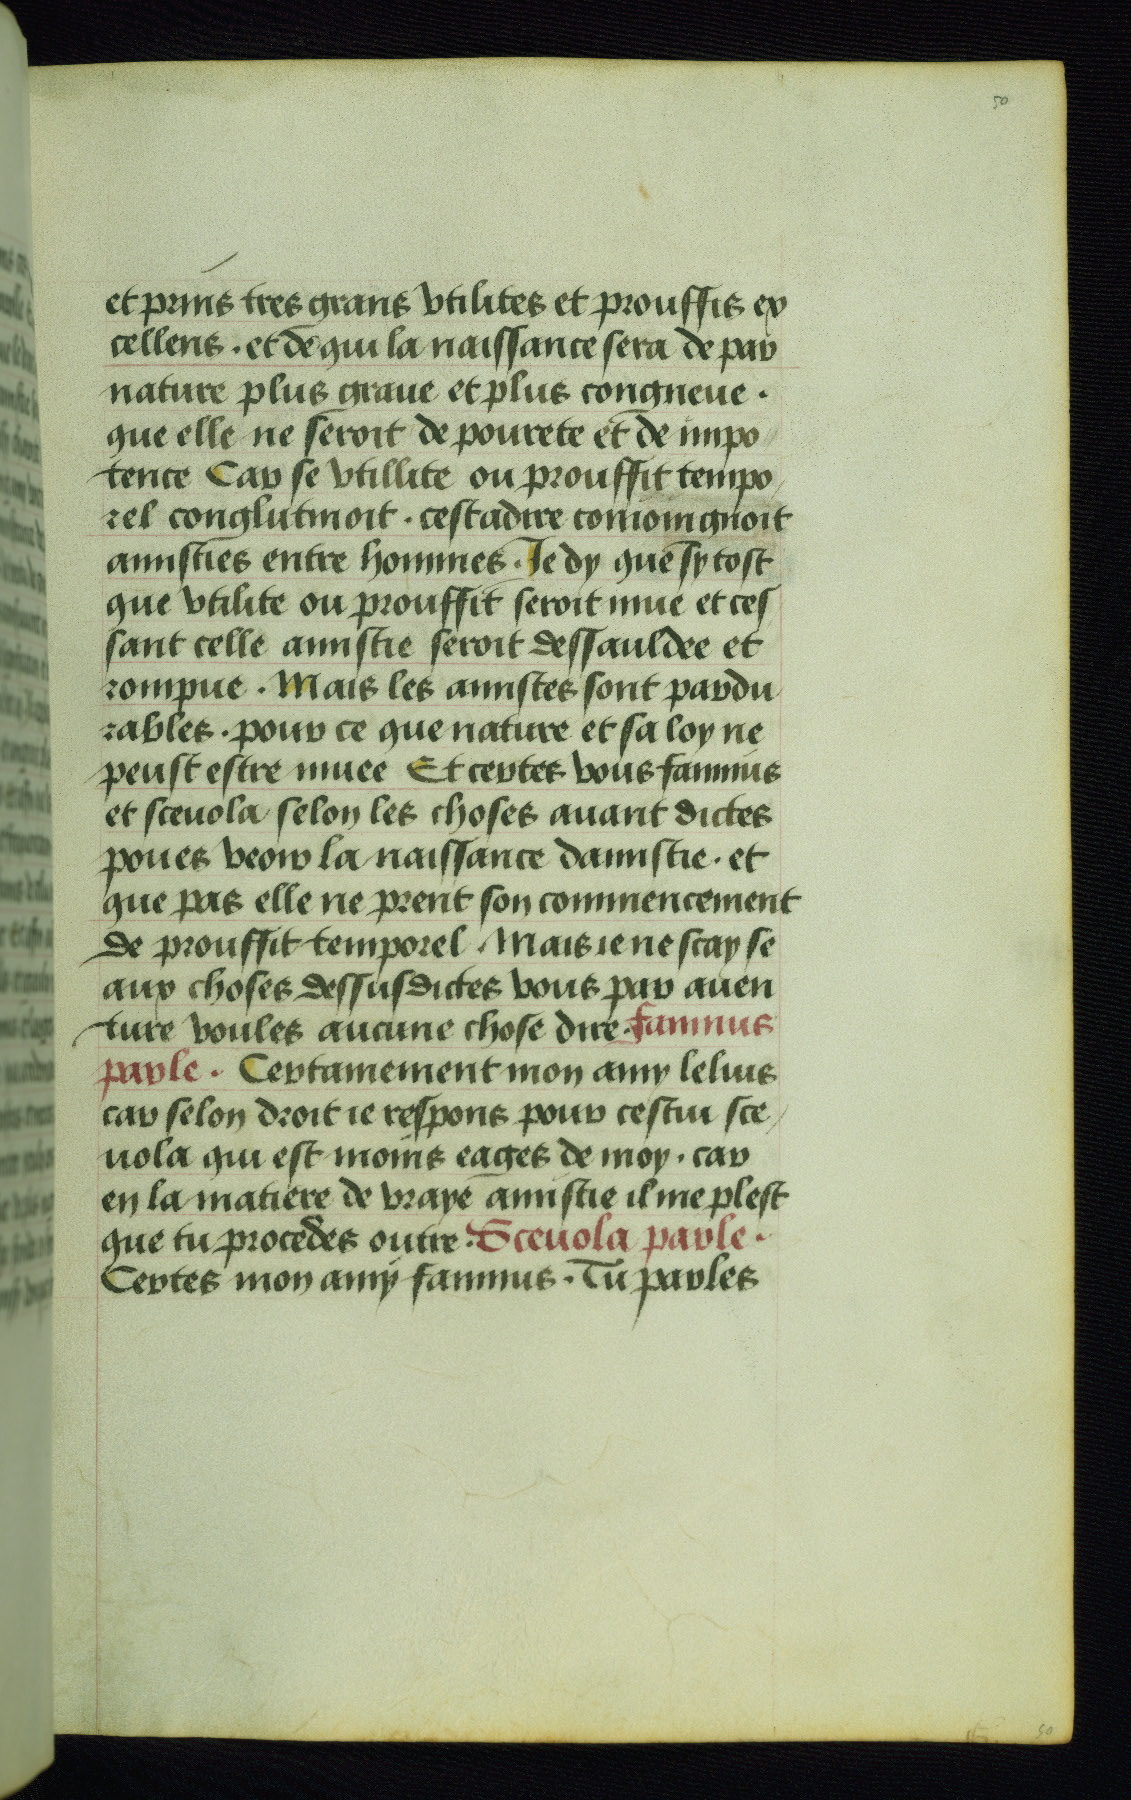 50
et prins tres grans vtilites et prouffis ex
cellens . et de qui la naissance sera de par
nature plus graue et plus congneue .
que elle ne seroit de pourete et de impo
tence Car se vtillite ou prouffit tempo
rel conglutinoit . cestadire conioingnoit
amisties entre hommes . Je dy que sy tost
que vtilite ou prouffit seroit mue et ces
sant celle amistie seroit dessauldee et
rompue . Mais les amistes sont pardu
rables . pour ce que nature et sa loy ne
peust estre muee Et certes vous fannius
et sceuola selon les choses auant dictes
poues veoir la naissance damistie . et
que pas elle ne prent son commencement
de prouffit temporel . Mais ie ne scay se
aux choses dessusdictes vous par auen
ture voules aucune chose dire . fannius
parle . Certainement mon amy lelius
car selon droit ie respons pour cestui sce
uola qui est moins eages de moy . car
en la matiere de vraye amistie il me plest
que tu procedes outre . Sceuola parle .
Certes mon amy fannius . Tu parles
50